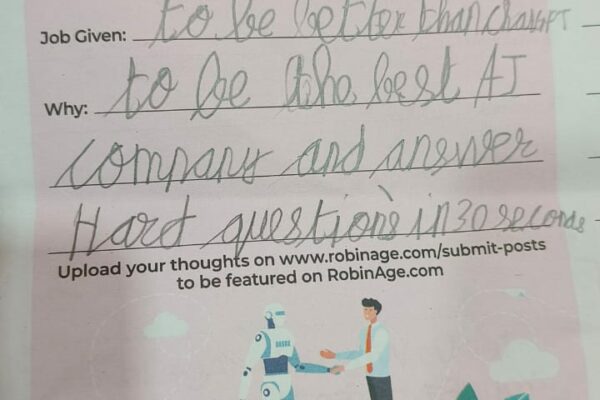 Job Given: to be better than ChatGPT
Why: to be the best AI
company and answer
Hard questions in 30 seconds
Upload your thoughts on www.robinage.com/submit-posts
to be featured on RobinAge.com